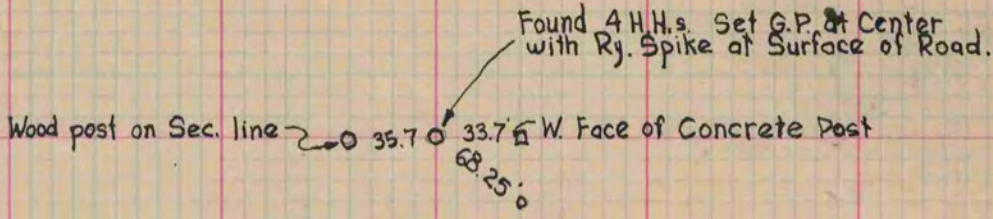 Found 4 H.H.s. Set G.P. at Center
with Ry. Spike at Surface of Road.
Wood post on Sec. line 35.7 33.7' W. Face of Concrete Post
68.25'